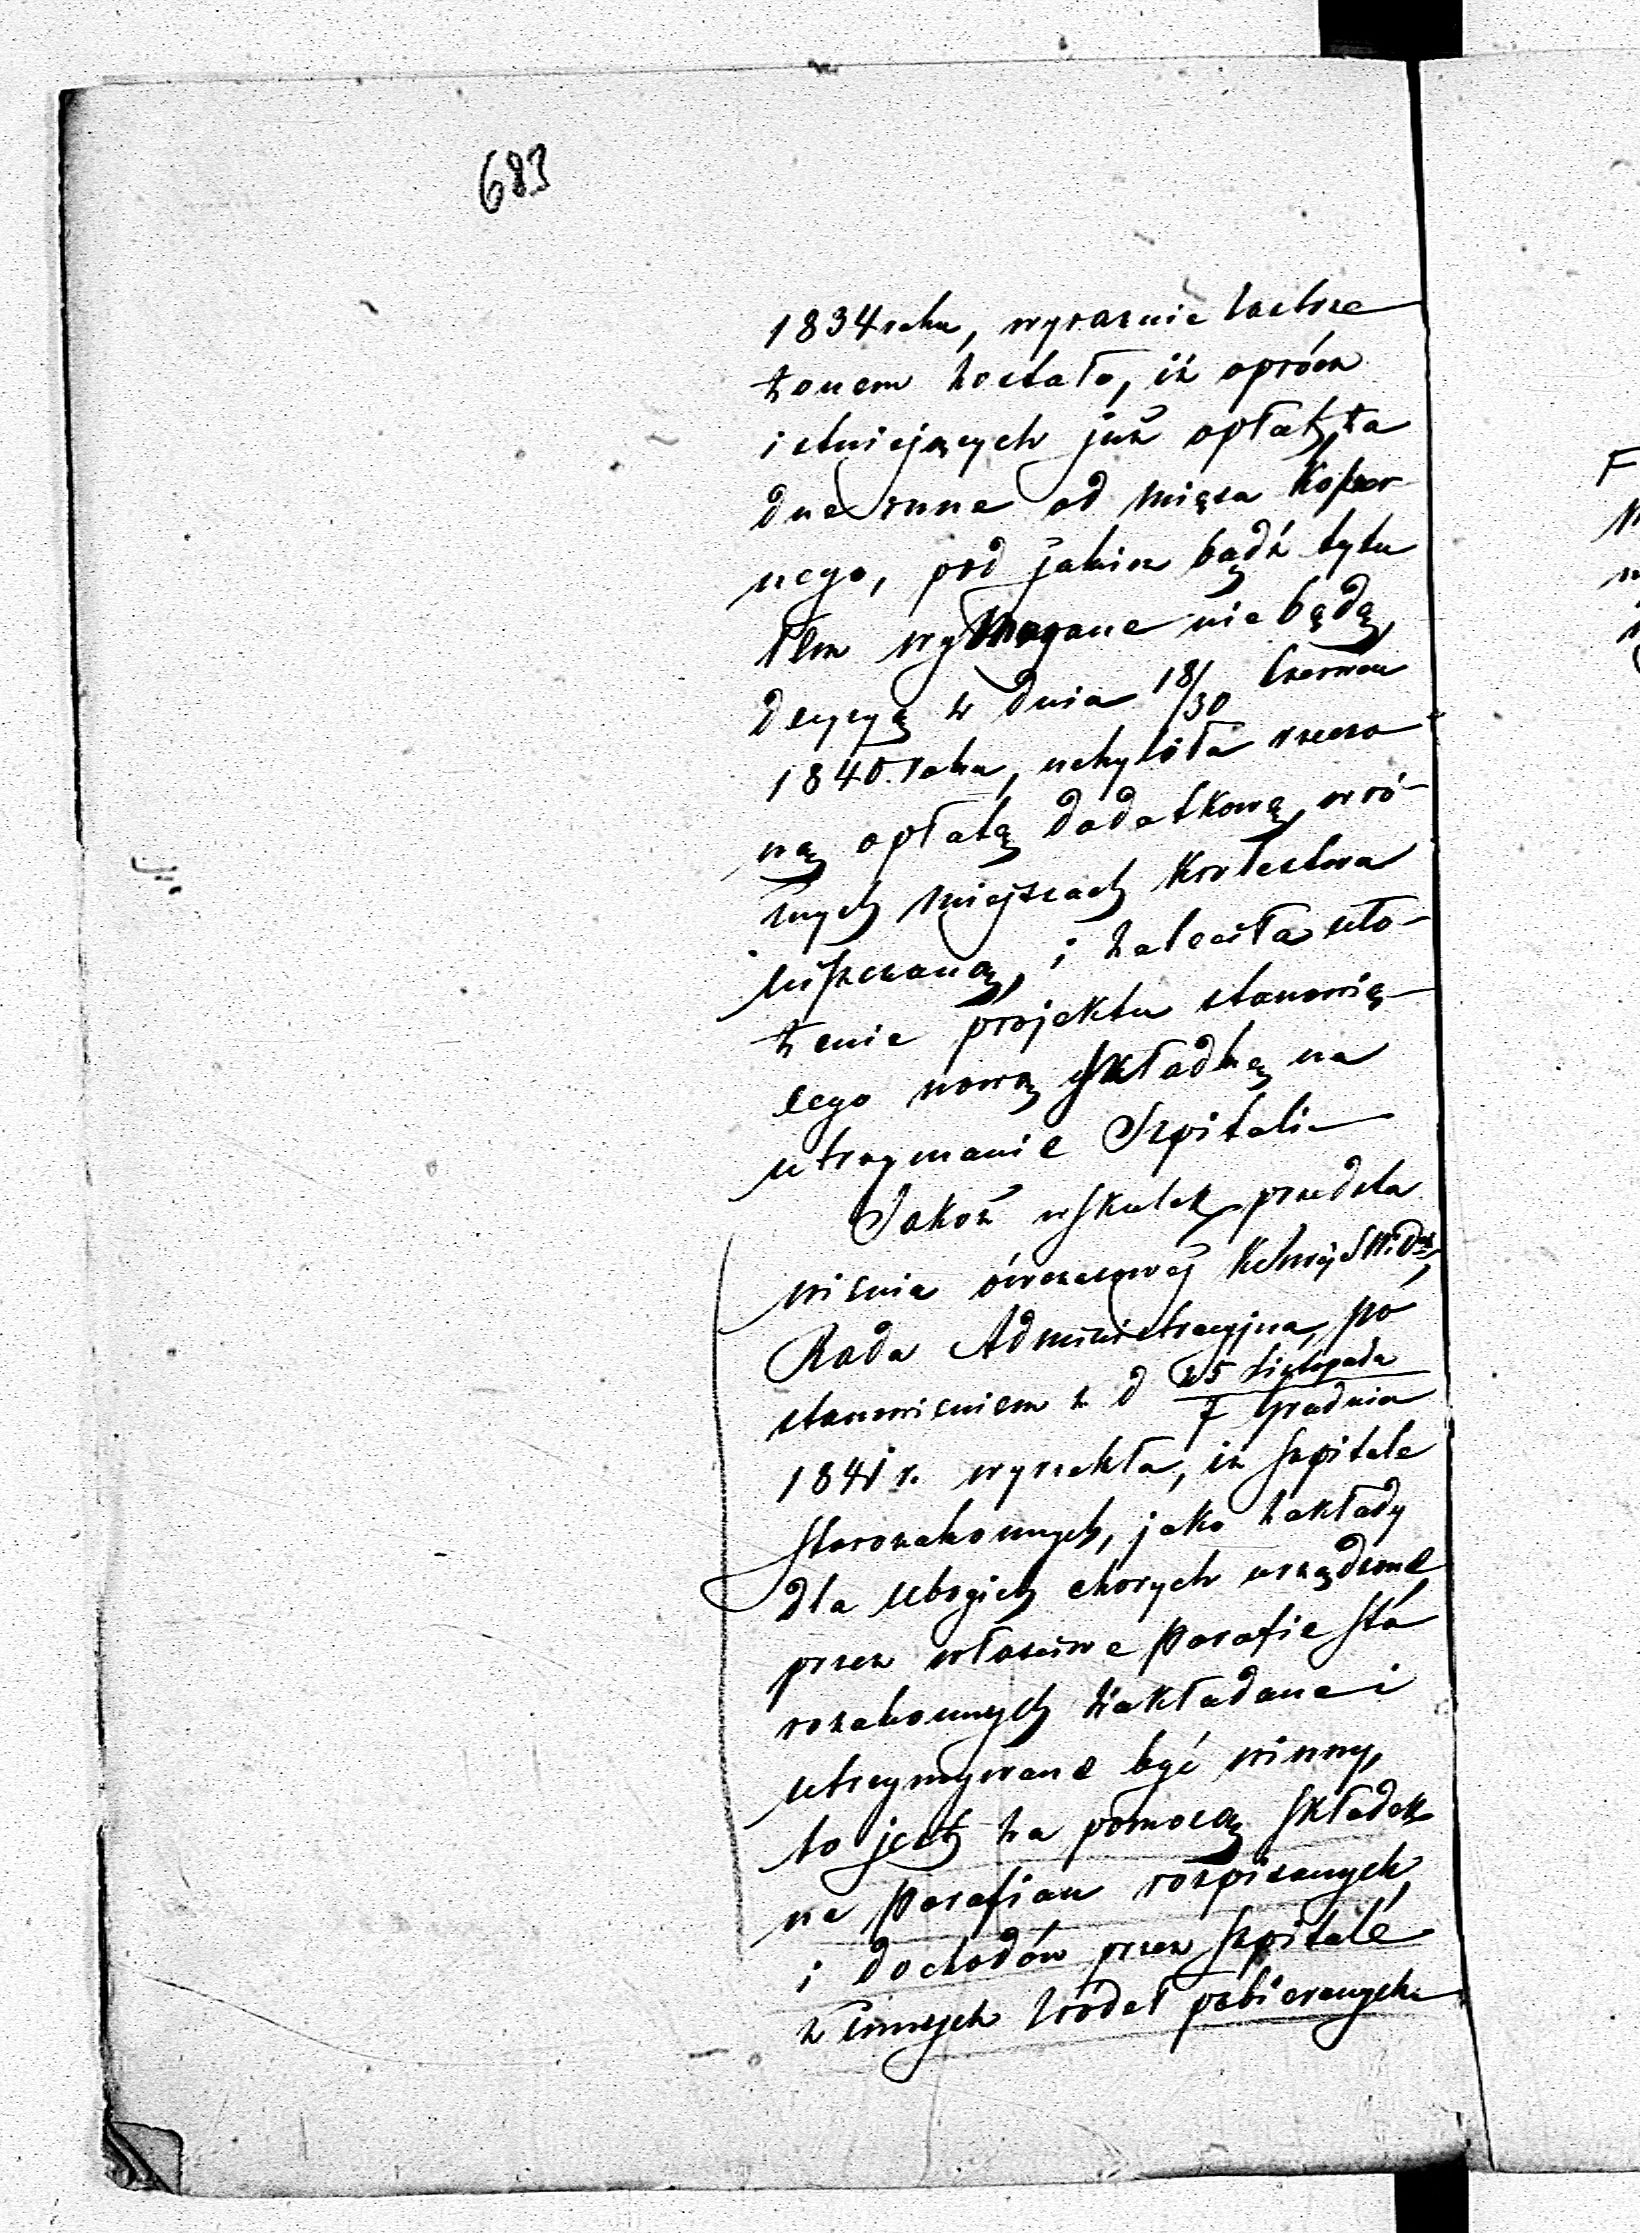 683
1834 roku, wyraznie zastrze
żonem zostało, iż oprócz
istniejących już opłat, ża
dne inne od mięsa Koszer
nego, pod jakim bądź tytu
łem wymagane nie będą,
decyzyą z dnia 18/30 Czerwca
1840 roku, uchyliła rzeczo
ną opłatę dodatkową w ró-
żnych miejscach Królestwa
uiszczaną, i zaleciła uło-
żenie projektu stanowią-
cego nową składkę na
utrzymanie Szpitali
Jakoż wskutek przedsta
wienia ówczesowej
Rada Administracyjna, po
stanowieniem z d 25 Listopada / 7 Grudnia
1841 r. wyrzekła, iż szpitale
starozakonnych, jako zakłady
dla ubogich chorych urządzone
przez właściwe parafie sta
rozakonnych zakładane i
utrzymywane być winny,
to jest za pomocą składek
na parafian rozpisanych
i dochodów przez szpitale
z innych źródeł pobieranych
F